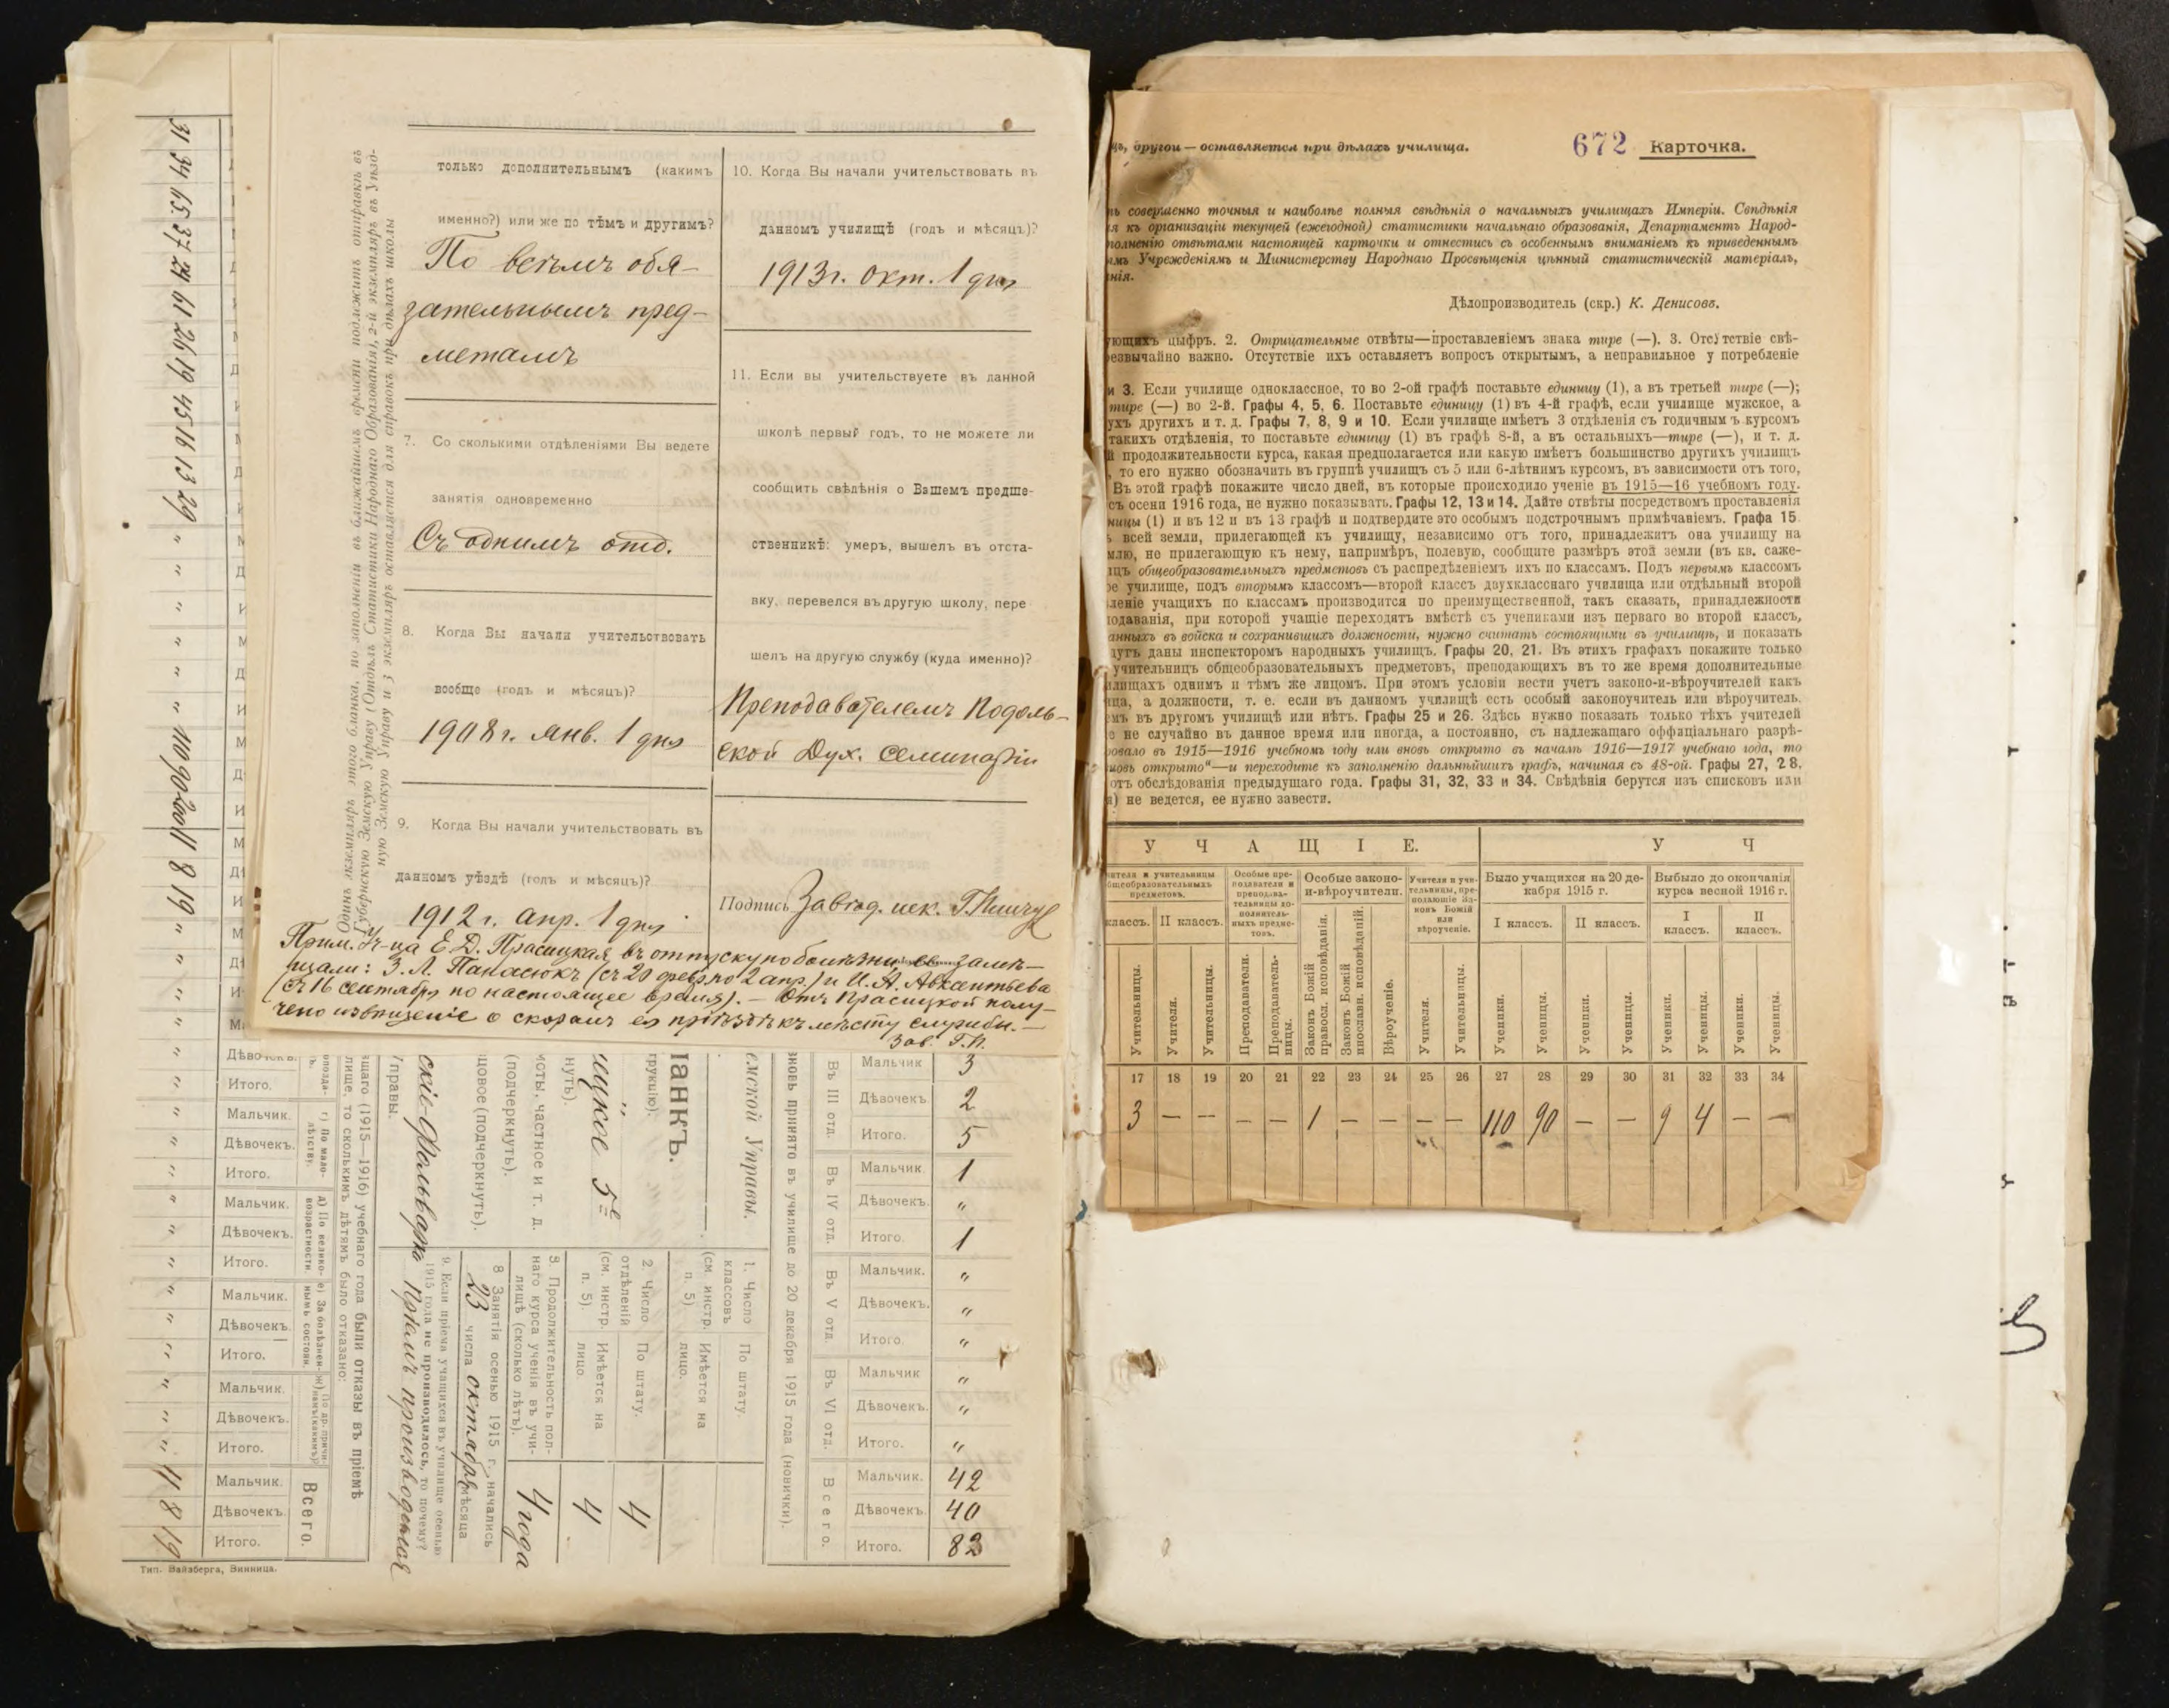 только дополнительнымъ (какимъ
именно?) или же по тѣмъ и другимъ?
По всѣмъ обя-
зательнымъ пред-
метамъ
7. Со сколькими отдѣленіями Вы ведете
занятія одновременно
Съ однимъ отд.
8. Когда Вы начали учительствовать
вообще (годъ и мѣсяцъ)?
1908 г. янв. 1 дня
9. Когда Вы начали учительствовать въ
данномъ уѣздѣ (годъ и мѣсяцъ)?
1912 г. апр. 1 дня
10. Когда Вы начали учительствовать въ
данномъ училищѣ (годъ и мѣсяцъ)?
1913 г. окт. 1 дня
11. Если вы учительствуете въ данной
школѣ первый годъ, то не можете ли
сообщить свѣдѣнія о Вашемъ предше-
ственникѣ: умеръ, вышелъ въ отста-
вку, перевелся въ другую школу, пере
шелъ на другую службу (куда именно)?
Преподавателемъ Подоль-
ской Дух. Семинаріи
Подпись Завѣд.
Прим. Уч-ца Е. Д. Прасицкая въ отпуску по болѣзни замѣ-
щали: З. Л. Панасюкъ (съ 20 февр. по 2 апр.) и И. А. Авксентьева
(съ 16 сентября по настоящее время). – Отъ Прасицкой полу-
чено извѣщеніе о скоромъ ея пріѣздѣ къ мѣсту службы. –
Зав. Г.П.
Одинъ экземпляръ этого бланка, по заполненіи въ ближайшемъ времени подлежитъ отправкѣ въ
Губернскую Земскую Управу (Отдѣлъ Статистики Народнаго Образованія), 2-й экземпляръ въ Уѣзд-
ную Земскую Управу и 3 экземпляръ оставляется для справокъ при дѣлахъ школы
31 34 65 37 24 61 26 19 45 16 13 29 " " " " " " 110 90 200 11 8 19 " " " " " " " " " " " " " " " 11 8 19
Дѣвочекъ.
Итого.
г) По мало-
лѣтству.
Мальчик.
Дѣвочекъ.
Итого.
д) По велико-
возрастности.
Мальчик.
Дѣвочекъ.
Итого.
е) За болѣзнен-
нымъ состоян.
Мальчик.
Дѣвочекъ.
Итого.
ж) По др. причи-
намъ (какимъ)?
Мальчик.
Дѣвочекъ.
Итого.
Всего.
Мальчик.
Дѣвочекъ.
Итого.
Тип. Вайзберга, Винница.
шаго (1915—1916) учебнаго года были отказы въ пріемѣ
лище, то сколькимъ дѣтямъ было отказано:
правы.
цовое (подчеркнуть).
(подчеркнуть).
частное и т. д.
нуть).
щкое 5ое
рукцію).
ЛАНКЪ.
емской Управы.
1. Число
классовъ
(см. инстр.
п. 5)
По штату.
Имѣется на
лицо.
2 Число
отдѣленій
(см. инстр.
п. 5).
По штату. 4
Имѣется на
лицо. 4
3. Продолжительность пол-
наго курса ученія въ учи-
лищѣ (сколько лѣтъ).
4 года
8 Занятія осенью 1915 г. начались
23 числа октября мѣсяца
9. Если пріема учащихся въ училище осенью
1915 года не производилось, то почему?
Пріемъ производился
вновь принято въ училище до 20 декабря 1915 года (новички).
Въ III отд.
Мальчик 3
Дѣвочекъ 2
Итого. 5
Въ IV отд.
Мальчик 1
Дѣвочекъ. "
Итого. 1
Въ V отд.
Мальчик. "
Дѣвочекъ. "
Итого. "
Въ VI отд.
Мальчик "
Дѣвочекъ. "
Итого. "
Всего.
Мальчик. 42
Дѣвочекъ 40
Итого. 82
другой — оставляется при дѣлахъ училища. 672 Карточка.
совершенно точныя и наиболѣе полныя свѣдѣнія о начальныхъ училищахъ Имперіи. Свѣдѣнія
къ организаціи текущей (ежегодной) статистики начальнаго образованія, Департаментъ Народ-
полненію отвѣтами настоящей карточки и отнестись съ особеннымъ вниманіемъ къ приведеннымъ
Учрежденіямъ и Министерству Народнаго Просвѣщенія цѣнный статистическій матеріалъ,
нія.
Дѣлопроизводитель (скр.) К. Денисовъ.
ующихъ цыфръ. 2. Отрицательные отвѣты—проставленіемъ знака тире (—). 3. Отсутствіе свѣ-
резвычайно важно. Отсутствіе ихъ оставляетъ вопросъ открытымъ, а неправильное употребленіе
и 3. Если училище одноклассное, то во 2-ой графѣ поставьте единицу (1), а въ третьей тире (—);
тире (—) во 2-й. Графы 4, 5, 6. Поставьте единицу (1) въ 4-й графѣ, если училище мужское, а
ухъ другихъ и т. д. Графы 7, 8, 9 и 10. Если училище имѣетъ 3 отдѣленія съ годичнымъ курсомъ
такихъ отдѣленія, то поставьте единицу (1) въ графѣ 8-й, а въ остальныхъ—тире (—), и т. д.
й продолжительности курса, какая предполагается или какую имѣетъ большинство другихъ училищъ
, то его нужно обозначить въ группѣ училищъ съ 5 или 6-лѣтнимъ курсомъ, въ зависимости отъ того,
Въ этой графѣ покажите число дней, въ которые происходило ученіе въ 1915—16 учебномъ году.
съ осени 1916 года, не нужно показывать. Графы 12, 13 и 14. Дайте отвѣты посредствомъ проставленія
ницы (1) и въ 12 и въ 13 графѣ и подтвердите это особымъ подстрочнымъ примѣчаніемъ. Графа 15
всей земли, прилегающей къ училищу, независимо отъ того, принадлежитъ она училищу на
млю, не прилегающую къ нему, напримѣръ, полевую, сообщите размѣръ этой земли (въ кв. саже-
общеобразовательныхъ предметовъ съ распредѣленіемъ ихъ по классамъ. Подъ первымъ классомъ
училище, подъ вторымъ классомъ—второй классъ двухкласснаго училища или отдѣльный второй
леніе учащихъ по классамъ производится по преимущественной, такъ сказать, принадлежности
подаванія, при которой учащіе переходятъ вмѣстѣ съ учениками изъ перваго во второй классъ,
анныхъ въ войска и сохранившихъ должности, нужно считать состоящими въ училищѣ, и показать
утъ даны инспекторомъ народныхъ училищъ. Графы 20, 21. Въ этихъ графахъ покажите только
учительницъ общеобразовательныхъ предметовъ, преподающихъ въ то же время дополнительные
лищахъ однимъ и тѣмъ же лицомъ. При этомъ условіи вести учетъ законо-и-вѣроучителей какъ
ица, а должности, т. е. если въ данномъ училищѣ есть особый законоучитель или вѣроучитель.
емъ въ другомъ училищѣ или нѣтъ. Графы 25 и 26. Здѣсь нужно показать только тѣхъ учителей
не случайно въ данное время или иногда, а постоянно, съ надлежащаго оффиціальнаго разрѣ-
овало въ 1915—1916 учебномъ году или вновь открыто въ началѣ 1916—1917 учебнаго года, то
новь открыто“—и переходите къ заполненію дальнѣйшихъ графъ, начиная съ 48-ой. Графы 27, 28.
отъ обслѣдованія предыдущаго года. Графы 31, 32, 33 и 34. Свѣдѣнія берутся изъ списковъ или
) не ведется, ее нужно завести.
УЧАЩІЕ. У Ч
ителя и учительницы
бщеобразовательныхъ
предметовъ.
Особые пре-
подаватели и
препода́ва-
тельницы до-
полнитель-
ныхъ предме-
товъ.
Особые законо-
и-вѣроучители.
Учителя и учи-
тельницы, пре-
подающіе За-
конъ Божій
или
вѣроученіе.
Было учащихся на 20 де-
кабря 1915 г.
Выбыло до окончанія
курса весной 1916 г.
классъ. II классъ. I классъ. II классъ. I классъ. II классъ.
Учительницы. Учителя. Учительницы. Преподаватели. Преподаватель-ницы. Законъ Божій правосл. исповѣданія. Законъ Божій инославн. исповѣданій. Вѣроученіе. Учителя. Учительницы. Ученики. Ученицы. Ученики. Ученицы. Ученики. Ученицы. Ученики. Ученицы.
17 18 19 20 21 22 23 24 25 26 27 28 29 30 31 32 33 34
3 — — — — 1 — — — — 110 90 — — 9 4 — —